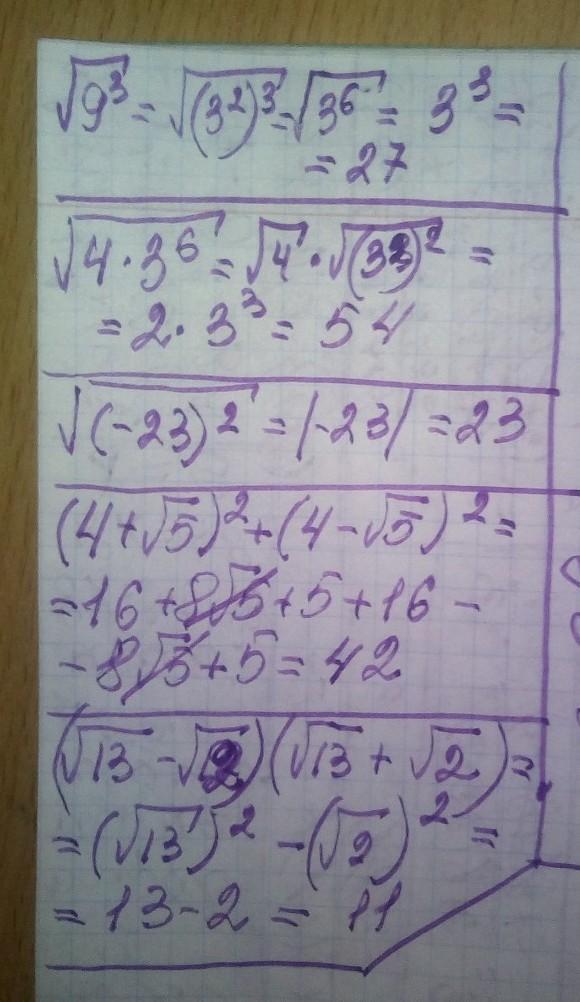 √9³ = √(3²)³ = √3⁶ = 3³ =
= 27
√4·3⁶ = √4 · √(3³)² =
= 2 · 3³ = 54
√(-23)² = |-23| = 23
(4+√5)² + (4-√5)² =
= 16 + 8√5 + 5 + 16 -
- 8√5 + 5 = 42
(√13 - √2)(√13 + √2) =
= (√13)² - (√2)² =
= 13 - 2 = 11